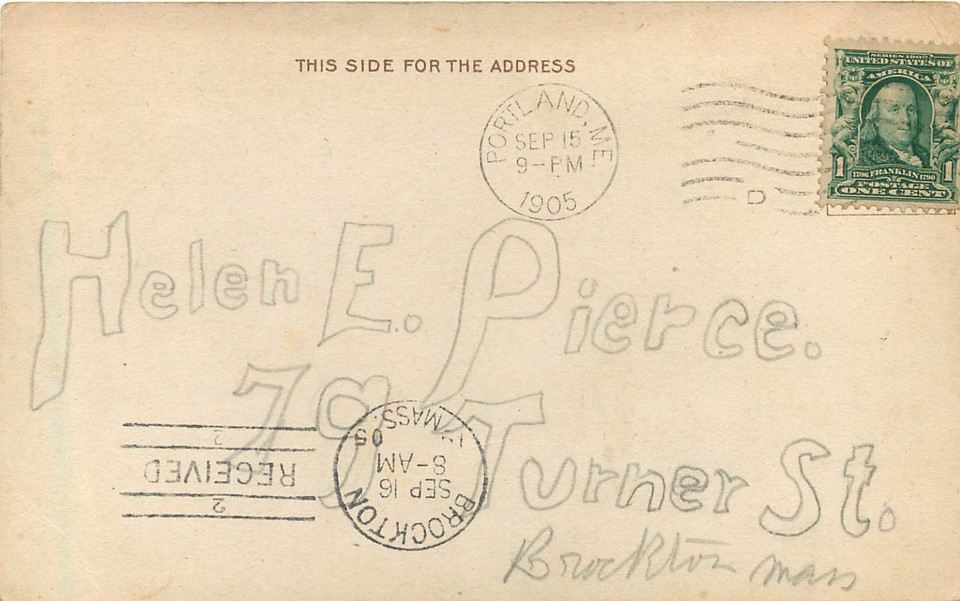 THIS SIDE FOR THE ADDRESS
PORTLAND, ME.
SEP 15
9-PM
1905
D
SERIES 1902
UNITED STATES OF
AMERICA
1 1
1706 FRANKLIN 1790
POSTAGE
ONE CENT
Helen E. Pierce.
79 Turner St.
Brockton Mass
BROCKTON
SEP 16
8-AM
05
MASS.
2
RECEIVED
2